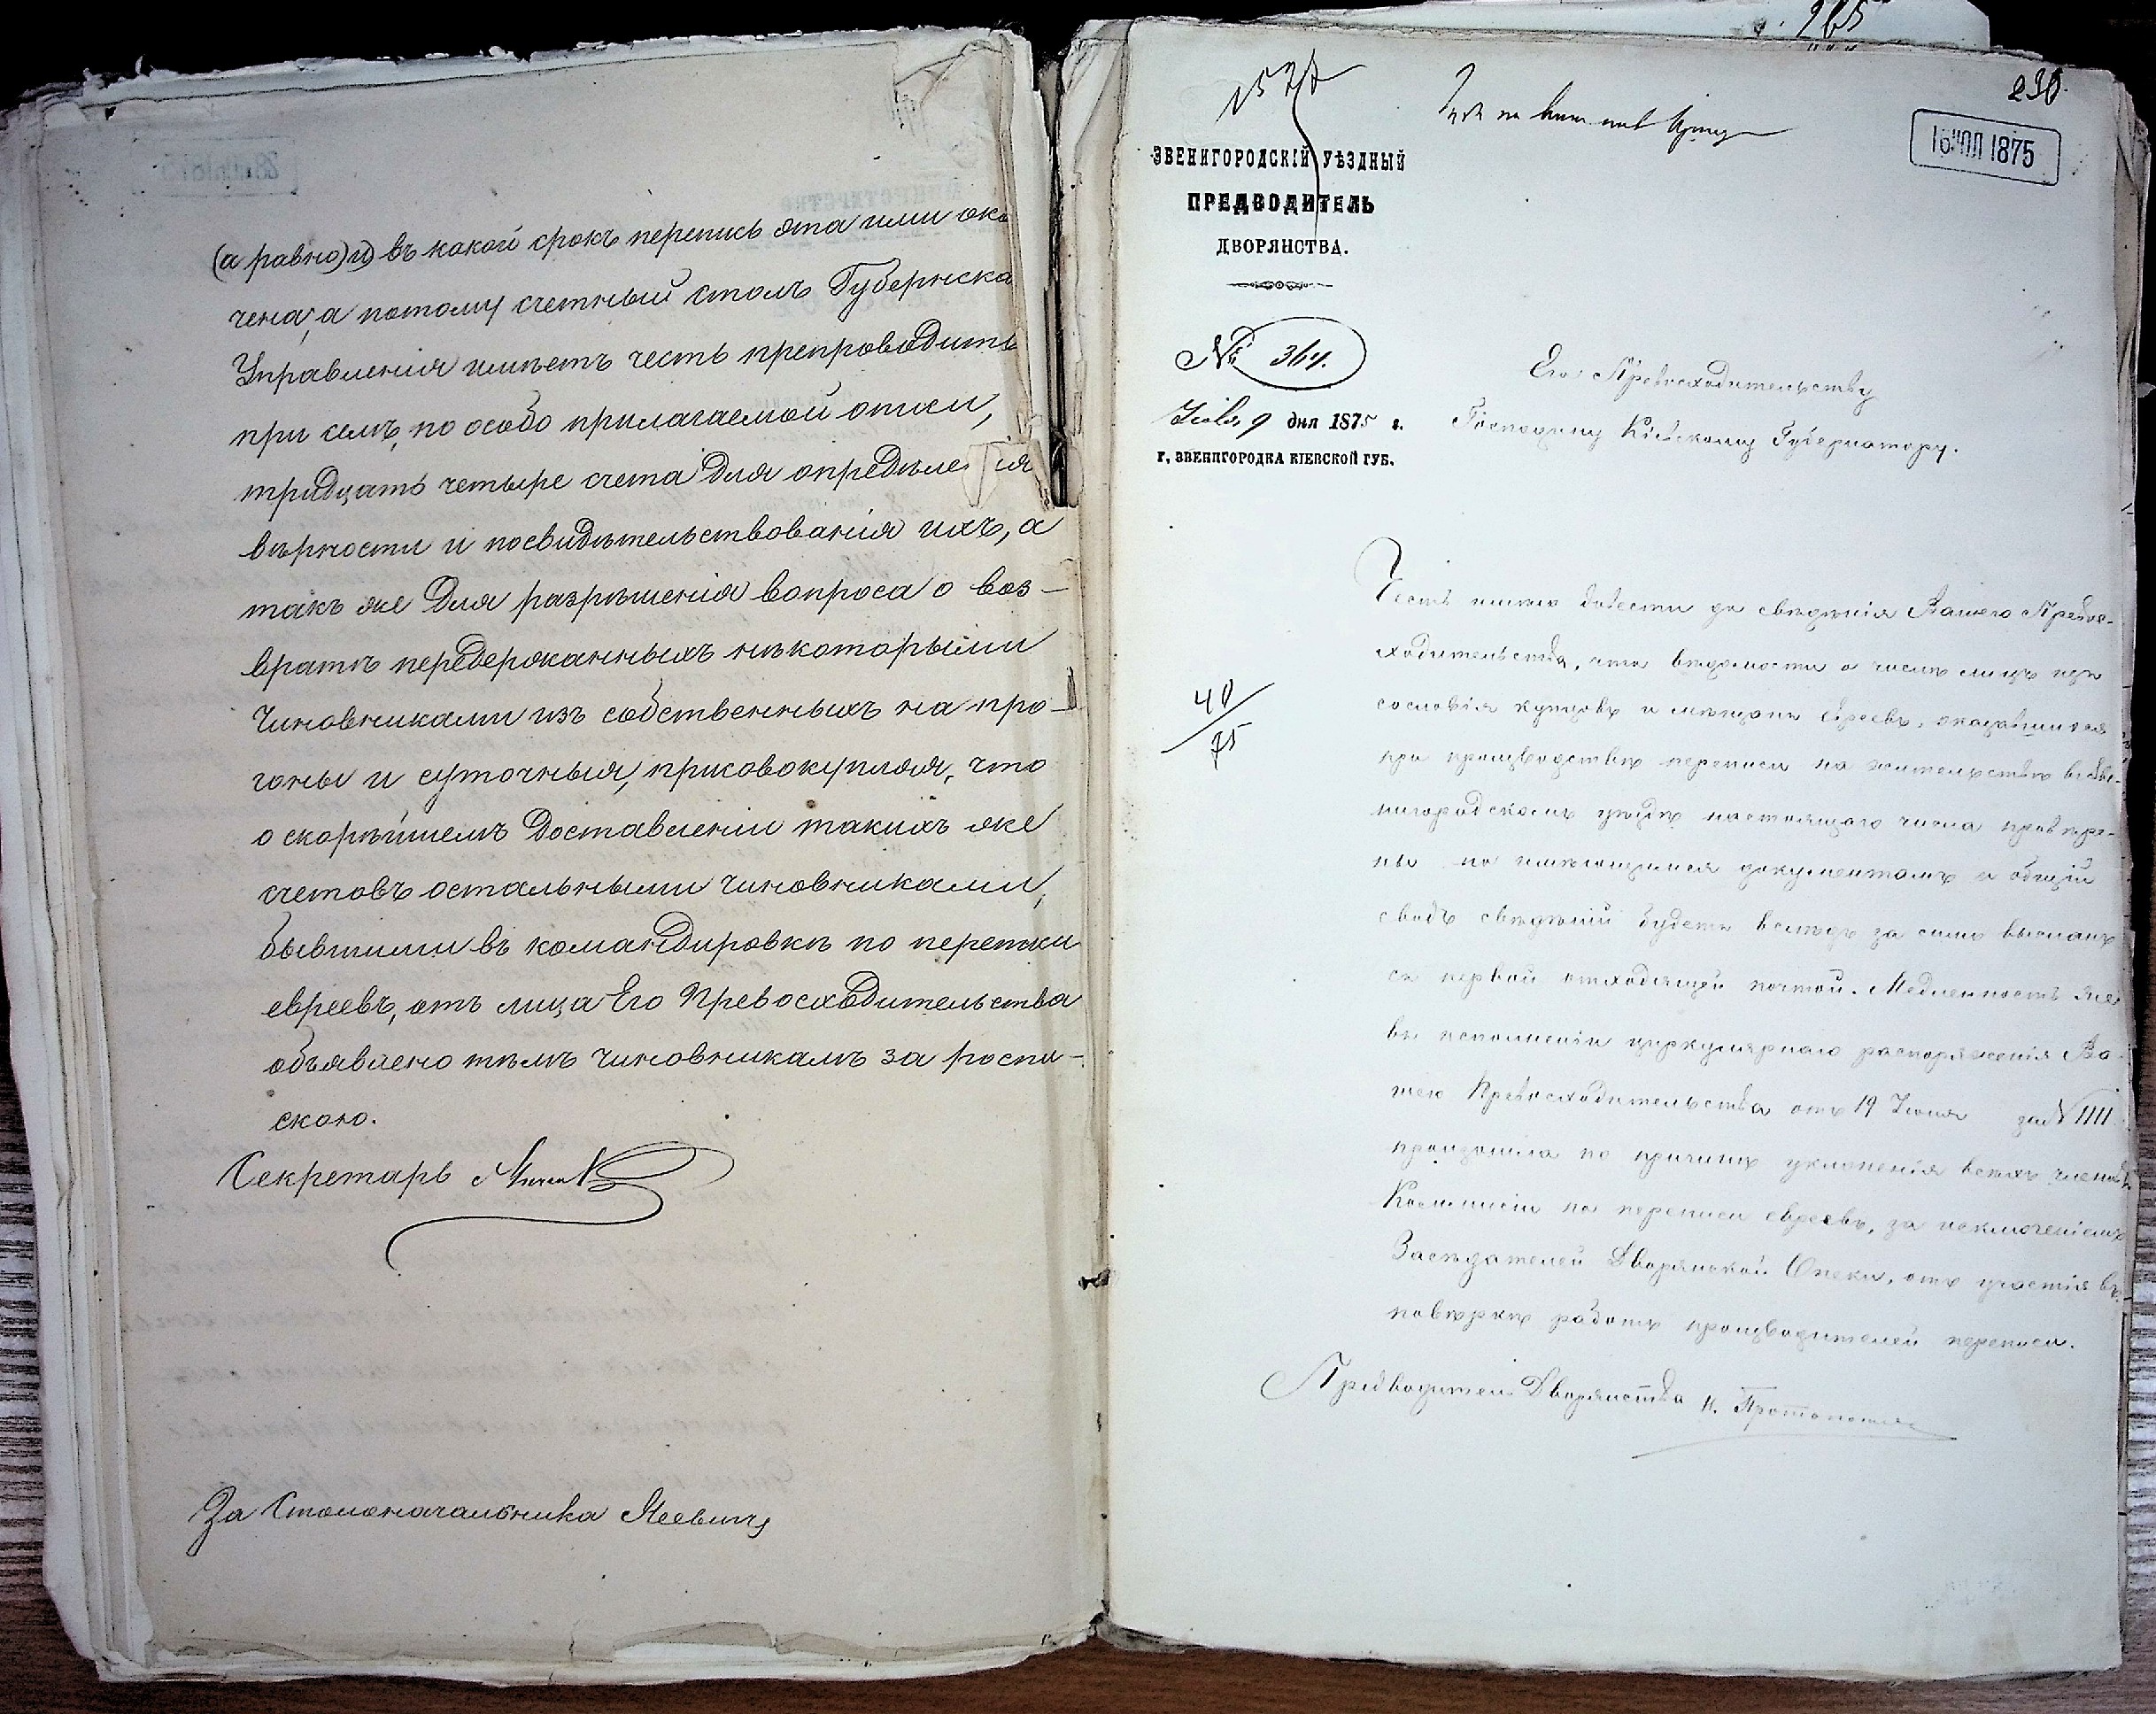 (а равно) и) въ какой срокъ перепись эта или око
чена, а потому счетный столъ Губернска
Управленія имѣетъ честь препроводить
при семъ, по особо прилагаемой описи,
тридцать четыре счета для опредѣленія
вѣрности и посвидѣтельствованія ихъ, а
такъ же для разрѣшенія вопроса о воз-
вратѣ передержанныхъ нѣкоторыми
Чиновниками изъ собственныхъ на про-
гоны и суточныя, присовокупляя, что
о скорѣйшемъ доставленіи такихъ же
счетовъ остальными чиновниками,
бывшими въ командировкѣ по переписи
евреевъ, отъ лица Его Превосходительства
объявлено тѣмъ чиновникамъ за роспи-
скою.
Секретарь
За Столоначальника
265
230
16 ІЮЛ 1875
ЗВЕНИГОРОДСКІЙ УѢЗДНЫЙ
ПРЕДВОДИТЕЛЬ
ДВОРЯНСТВА.
№ 364.
Іюля 9 дня 1875 г.
Г. ЗВЕНИГОРОДКА КІЕВСКОЙ ГУБ.
40/75
Его Превосходительству
Господину Кіевскому Губернатору.
Честь имѣю довести до свѣдѣнія Вашего Превос-
ходительства, что вѣдомости о числѣ лицъ изъ
сословія купцовъ и мѣщанъ евреевъ, оказавшихся
при производствѣ переписи на жительствѣ въ Зве-
нигородскомъ уѣздѣ настоящаго числа провѣре-
ны по имѣющимся документамъ и общій
сводъ свѣдѣній будетъ вслѣдъ за симъ высланъ
съ первой отходящей почтой. Медленность же
въ исполненіи циркулярнаго распоряженія Ва-
шего Превосходительства отъ 19 Іюня за № 1111
произошла по причинѣ уклоненія всѣхъ членовъ
Коммисіи по переписи евреевъ, за исключеніемъ
Засѣдателей Дворянской Опеки, отъ участія въ
повѣркѣ работъ производителей переписи.
Предводитель Дворянства